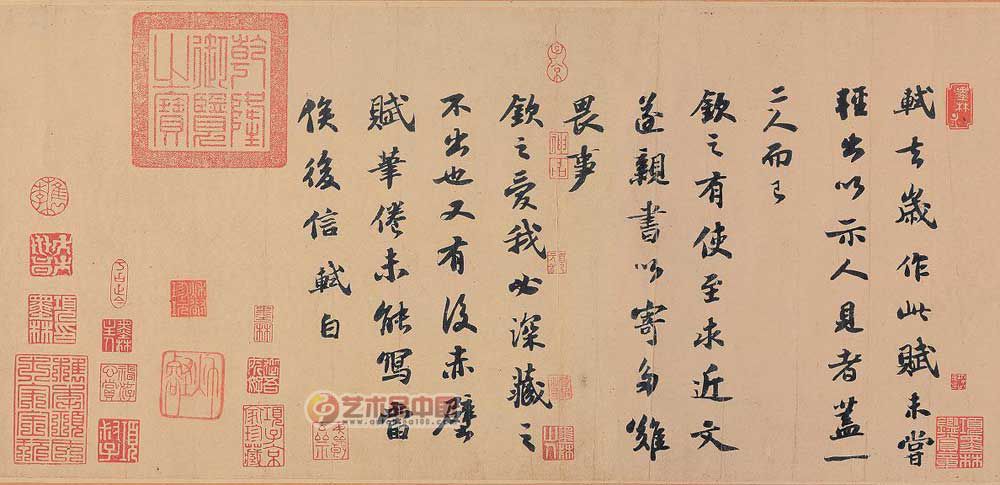 軾去歲作此賦未嘗
輕出以示人見者蓋一
二人而已
欽之有使至求近文
遂親書以寄多難
畏事
欽之愛我必深藏之
不出也又有後赤壁
賦筆倦未能寫當
俟後信軾白
乾隆
御覽
之寶
墨林
項子京
家珍藏
艺术品中国